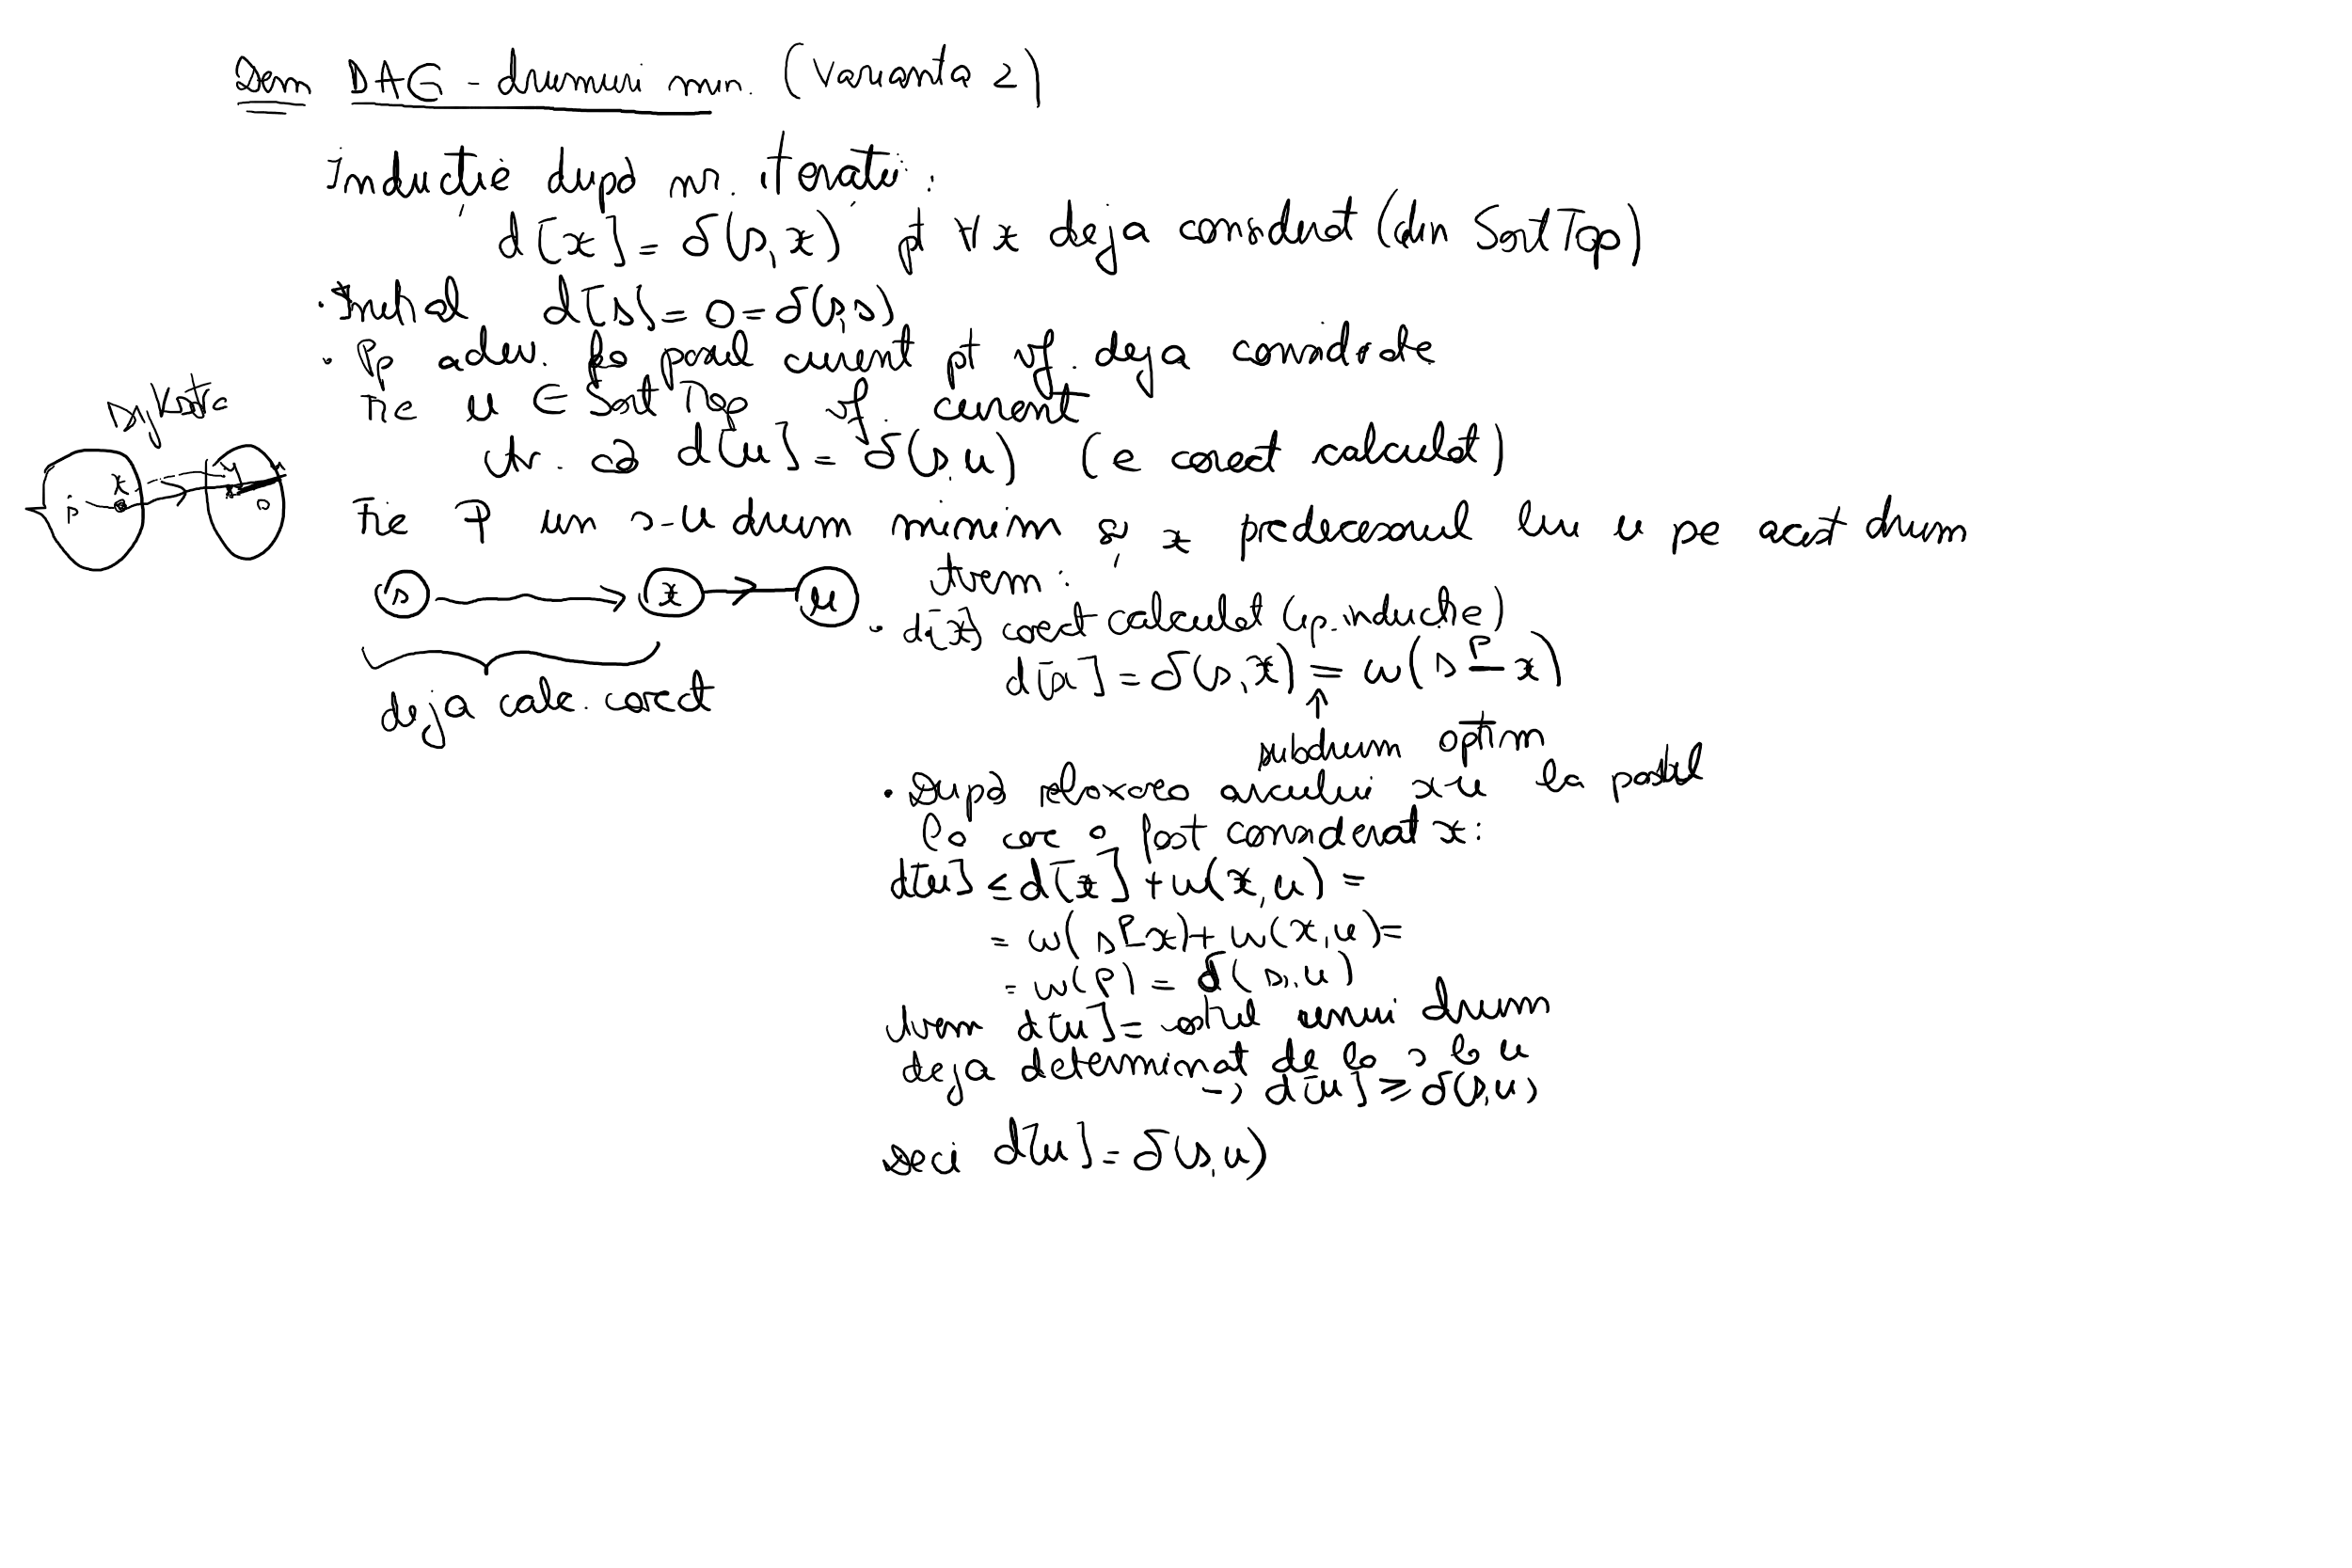 Dem DAG - drumuri min. (Varianta 2)
inducție după nr. iterații:
d[x] = δ(s,x) pt ∀x deja considerat (din SortTop)
· Inițial d[s] = 0 = δ(s,s)
· Pp adev. la pasul curent pt vf. deja considerate
Fie u ∈ SortTop vf. curent
Ar. că d[u] = δ(s,u) (e corect calculat)
Dijkstra
s x y u
Fie P un s-u drum minim și x predecesorul lui u pe acest drum
s x u
deja calc. corect
Avem:
· d[x] corect calculat (ip. inducție)
d[x] = δ(s,x) = w(s P x)
↑
subdrum optim
· După relaxarea arcului xu la pasul
la care a fost considerat x:
d[u] ≤ d[x] + w(x,u) =
= w(s P x) + w(x,u) =
= w(P) = δ(s,u)
Avem d[u] = costul unui drum
deja determinat de la s la u
→ d[u] ≥ δ(s,u)
Deci d[u] = δ(s,u)